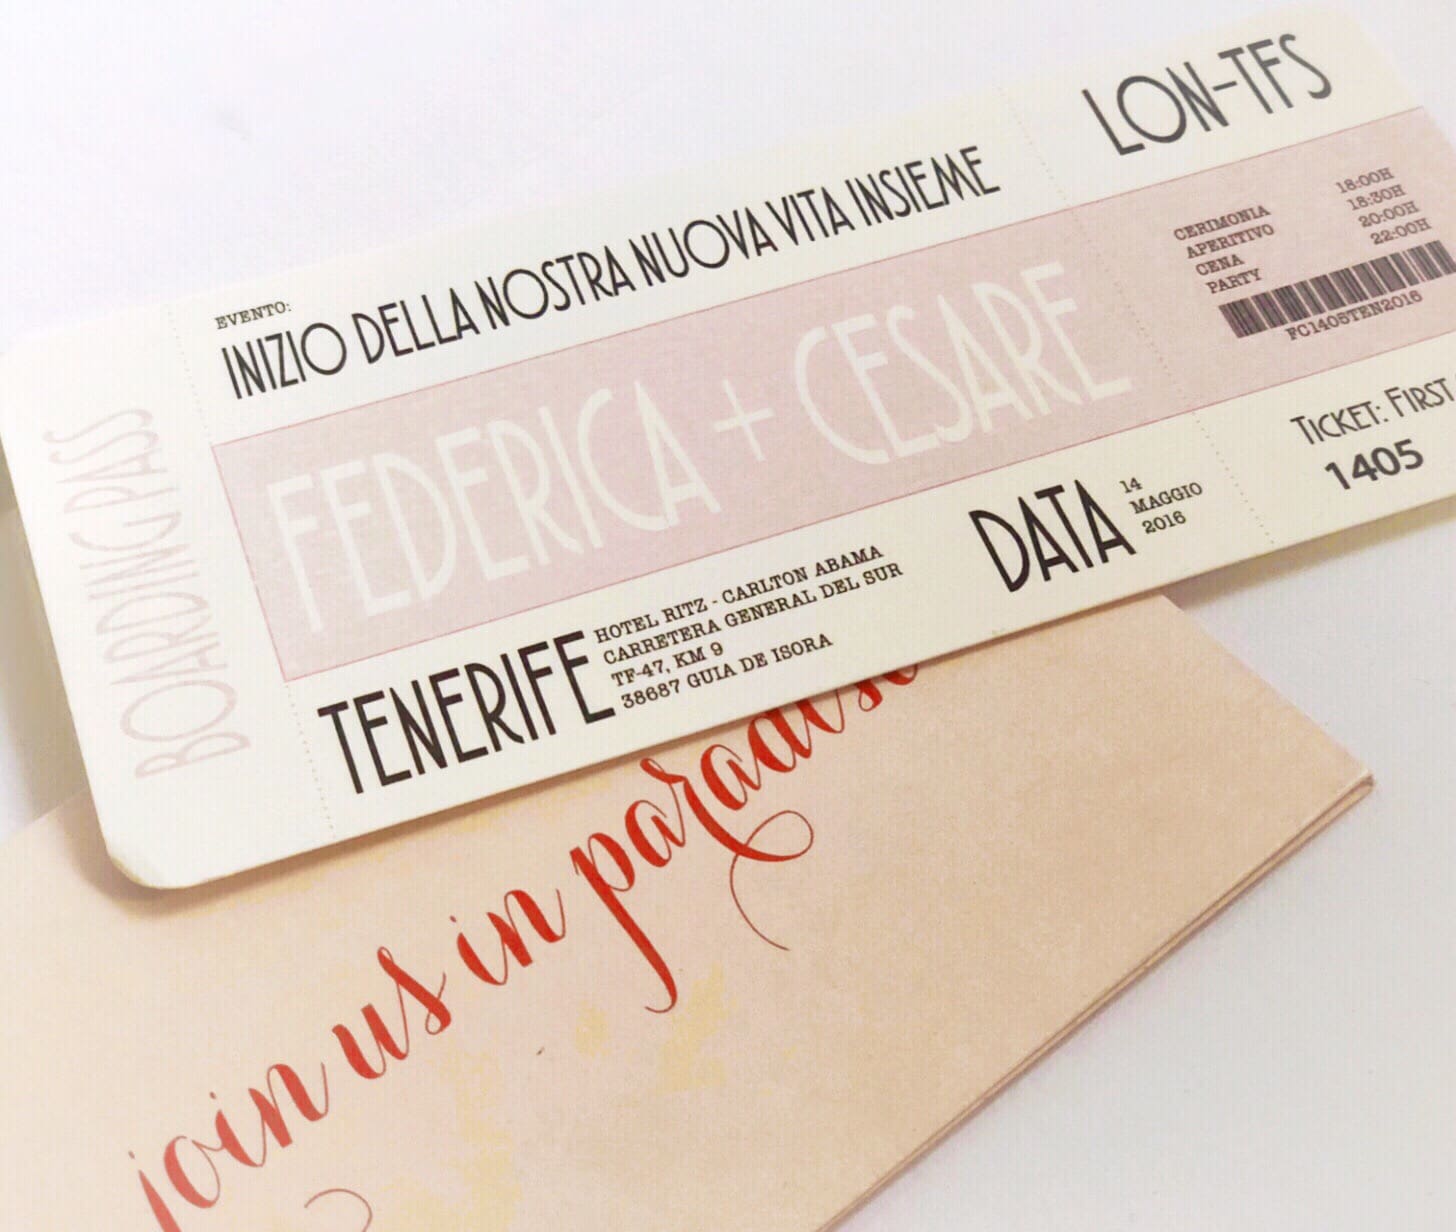 BOARDING PASS
EVENTO:
INIZIO DELLA NOSTRA NUOVA VITA INSIEME
FEDERICA + CESARE
TENERIFE
HOTEL RITZ - CARLTON ABAMA
CARRETERA GENERAL DEL SUR
TF-47, KM 9
38687 GUIA DE ISORA
DATA
14
MAGGIO
2016
LON-TFS
CERIMONIA 18:00H
APERITIVO 18:30H
CENA 20:00H
PARTY 22:00H
FC1405TEN2016
TICKET: FIRST
1405
join us in paradise